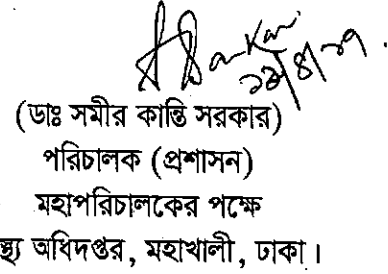 (ডাঃ সমীর কান্তি সরকার)
পরিচালক (প্রশাসন)
মহাপরিচালকের পক্ষে
স্থ্য অধিদপ্তর, মহাখালী, ঢাকা।